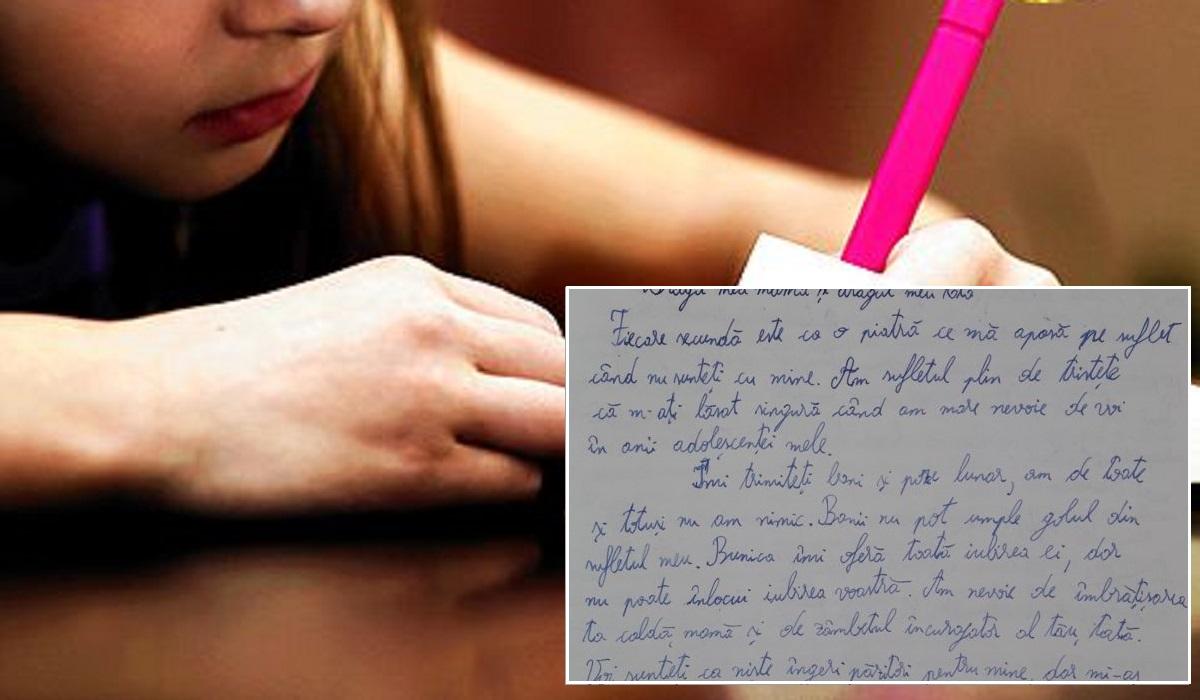 Draga mea mamă și dragul meu tată
Fiecare secundă este ca o piatră ce mă apasă pe suflet
când nu sunteți cu mine. Am sufletul plin de tristețe
că m-ați lăsat singură când am mare nevoie de voi
în anii adolescenței mele.
Îmi trimiteți bani și poze lunar, am de toate
și totuși nu am nimic. Banii nu pot umple golul din
sufletul meu. Bunica îmi oferă toată iubirea ei, dar
nu poate înlocui iubirea voastră. Am nevoie de îmbrățișarea
ta caldă mamă și de zâmbetul încurajator al tău, tată.
Voi sunteți ca niște îngeri păzitori pentru mine, dar mi-aș